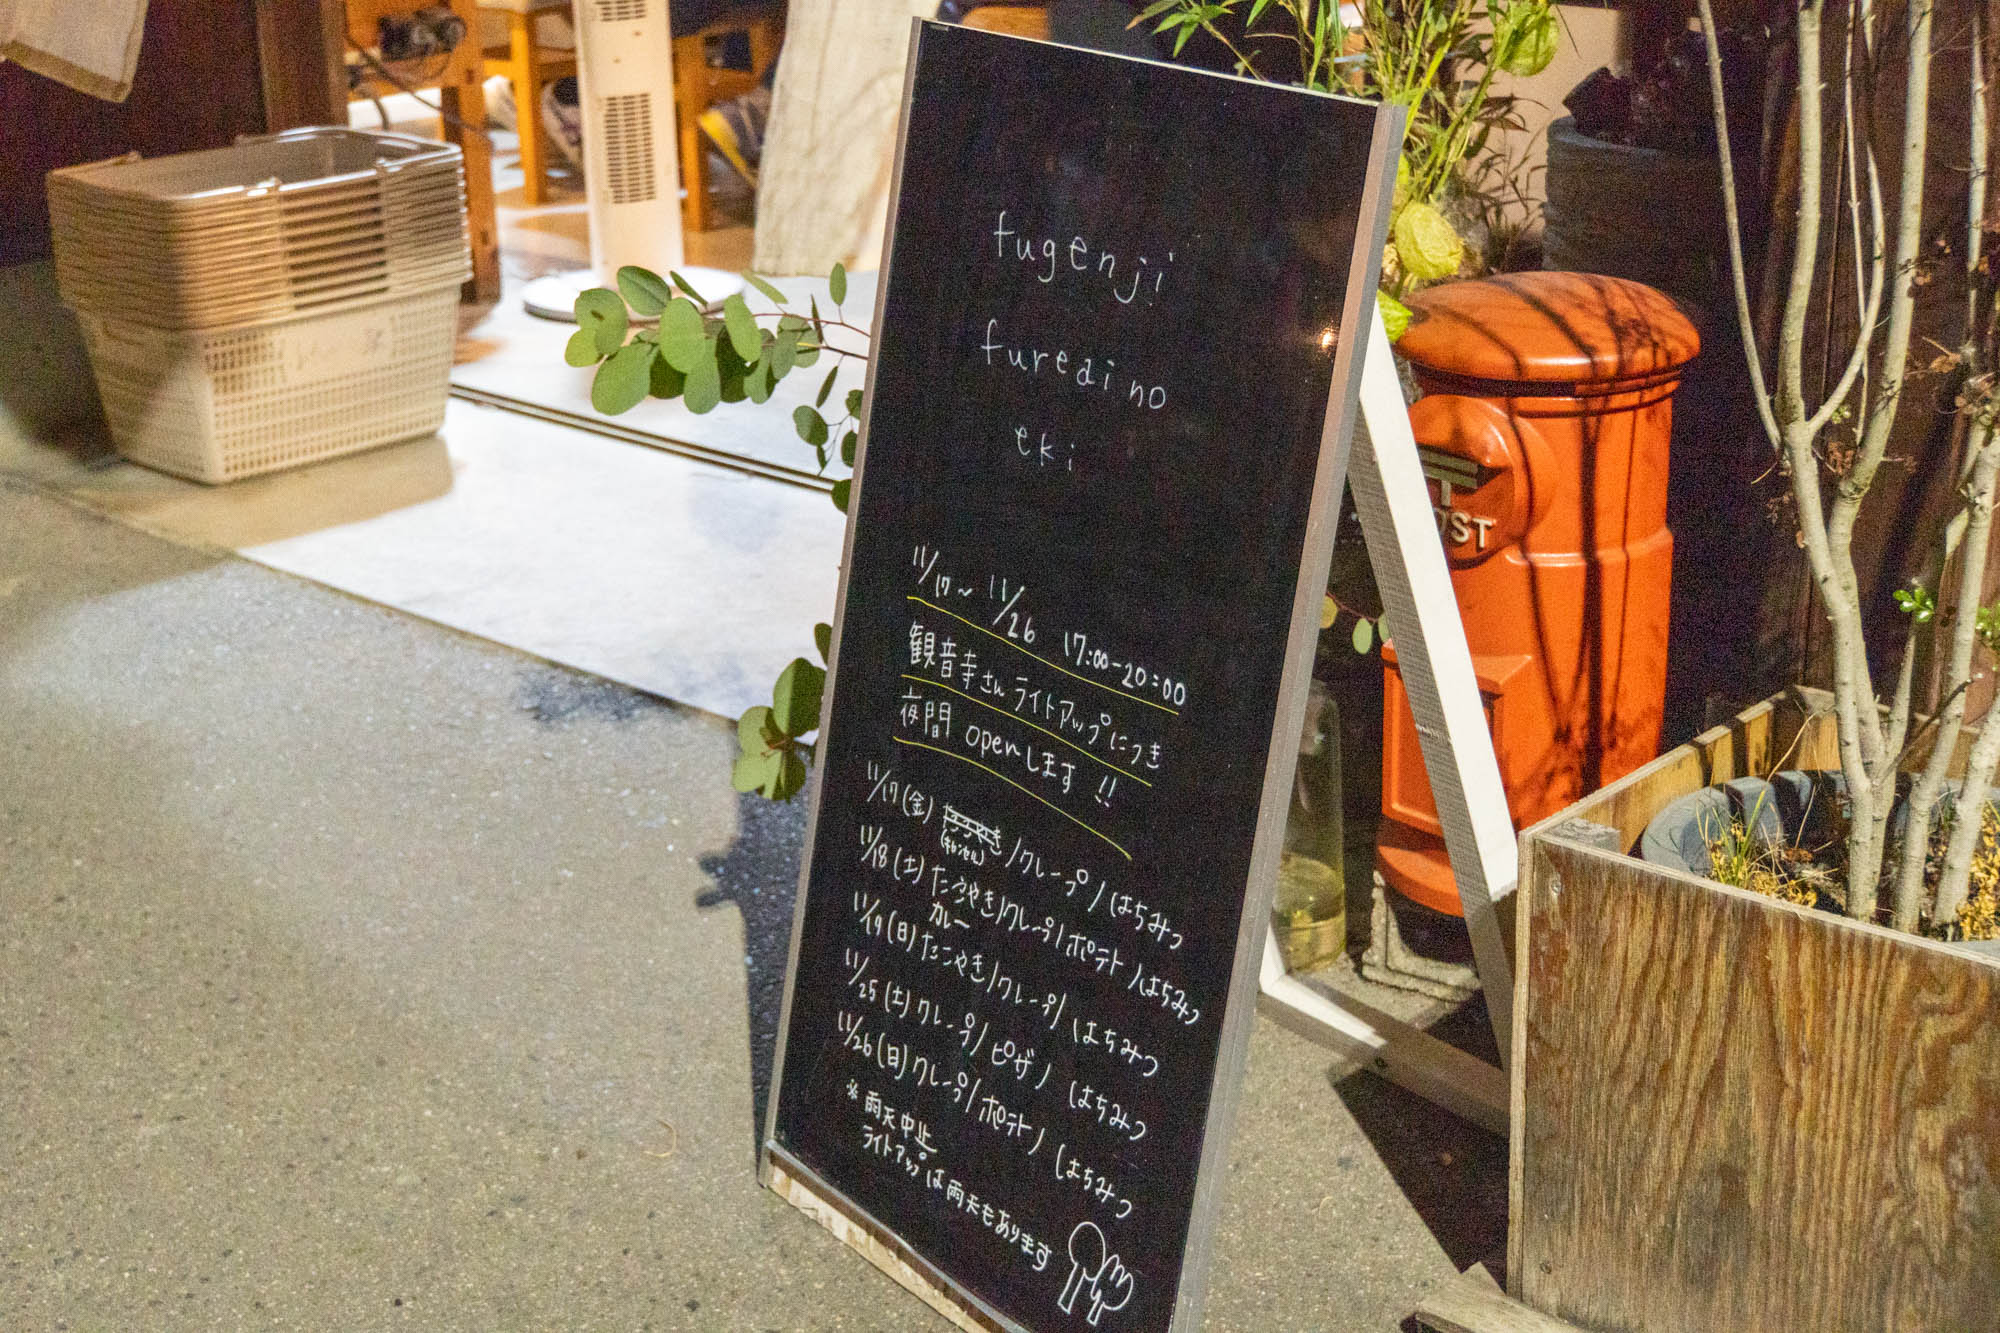 fugenji
fureai no
eki
11/17〜11/26 17:00-20:00
観音寺さんライトアップにつき
夜間openします!!
11/17(金) たこやき/クレープ/はちみつ
(キャンセル)
11/18(土)たこやき/クレープ/ポテト/はちみつ
カレー
11/19(日)たこやき/クレープ/はちみつ
11/25(土)クレープ/ピザ/はちみつ
11/26(日)クレープ/ポテト/はちみつ
※雨天中止
ライトアップは雨天もあります
〒
POST